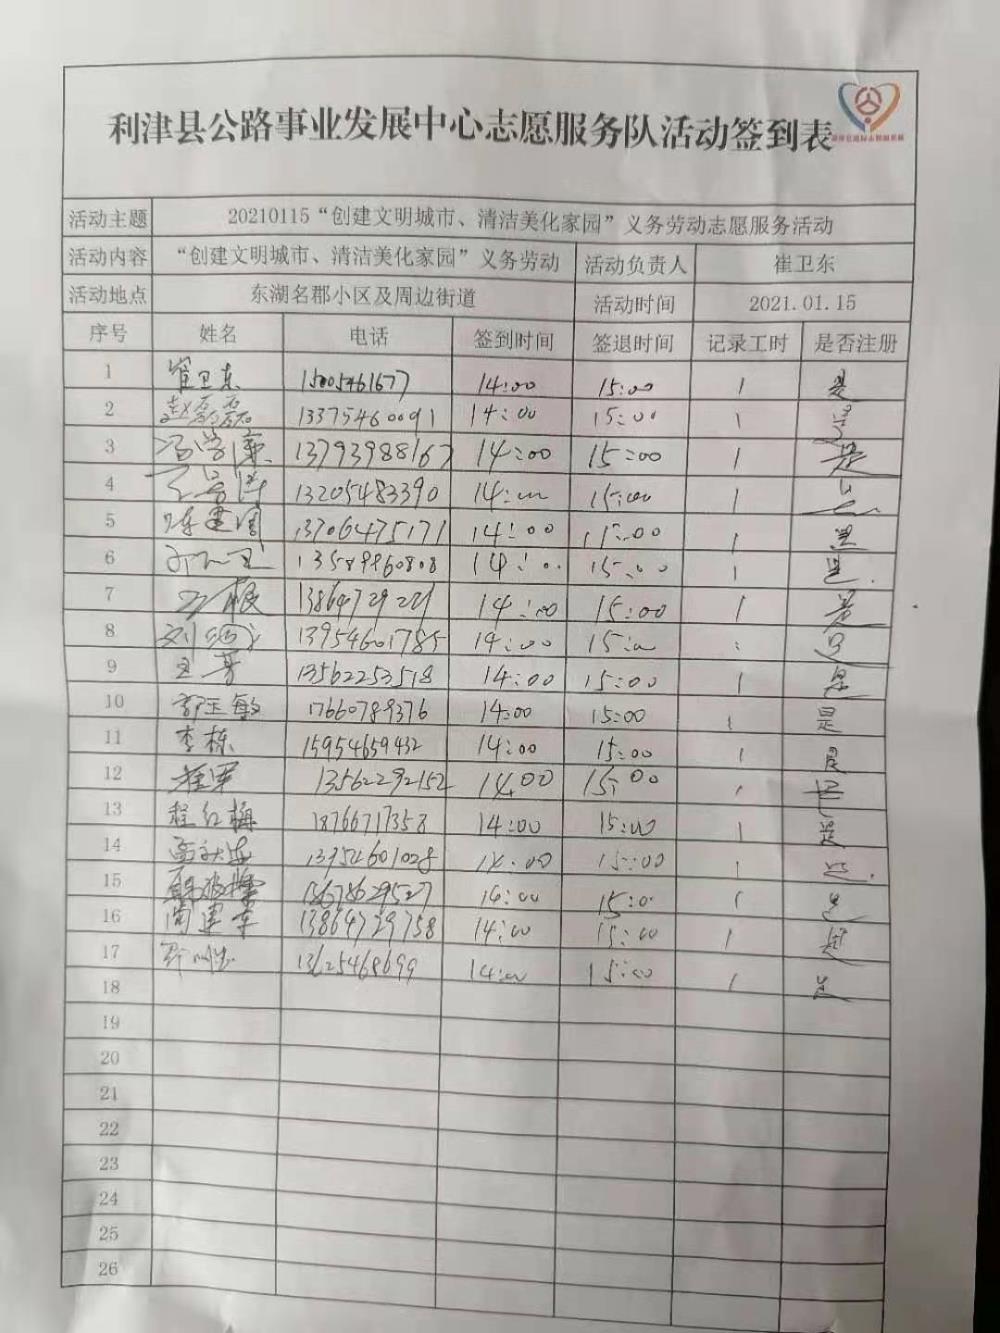 利津县公路事业发展中心志愿服务队活动签到表
活动主题 20210115“创建文明城市、清洁美化家园”义务劳动志愿服务活动
活动内容 “创建文明城市、清洁美化家园”义务劳动 活动负责人 崔卫东
活动地点 东湖名郡小区及周边街道 活动时间 2021.01.15
序号 姓名 电话 签到时间 签退时间 记录工时 是否注册
1 崔卫东 15005461677 14:00 15:00 1 是
2 赵磊磊 13375460091 14:00 15:00 1 是
3 13793988167 14:00 15:00 1 是
4 13205483390 14:00 15:00 1 是
5 陈建国 13706475171 14:00 15:00 1 是
6 13589960808 14:00 15:00 1 是.
7 14:00 15:00 1 是
8 13954601785 14:00 15:00 是
9 王芳 13562253518 14:00 15:00 1 是
10 郭玉敏 17660789376 14:00 15:00 1 是
11 李栋 15954659432 14:00 15:00 1 是
12 13562292152 14:00 15:00 1 是
13 程红梅 18766717358 14:00 15:00 1 是
14 13954601028 14:00 15:00 1 是.
15 14:00 15:0 1 是
16 13864729758 14:00 15:00 1 是
17 13625468699 14:00 15:00 1 是
18
19
20
21
22
23
24
25
26